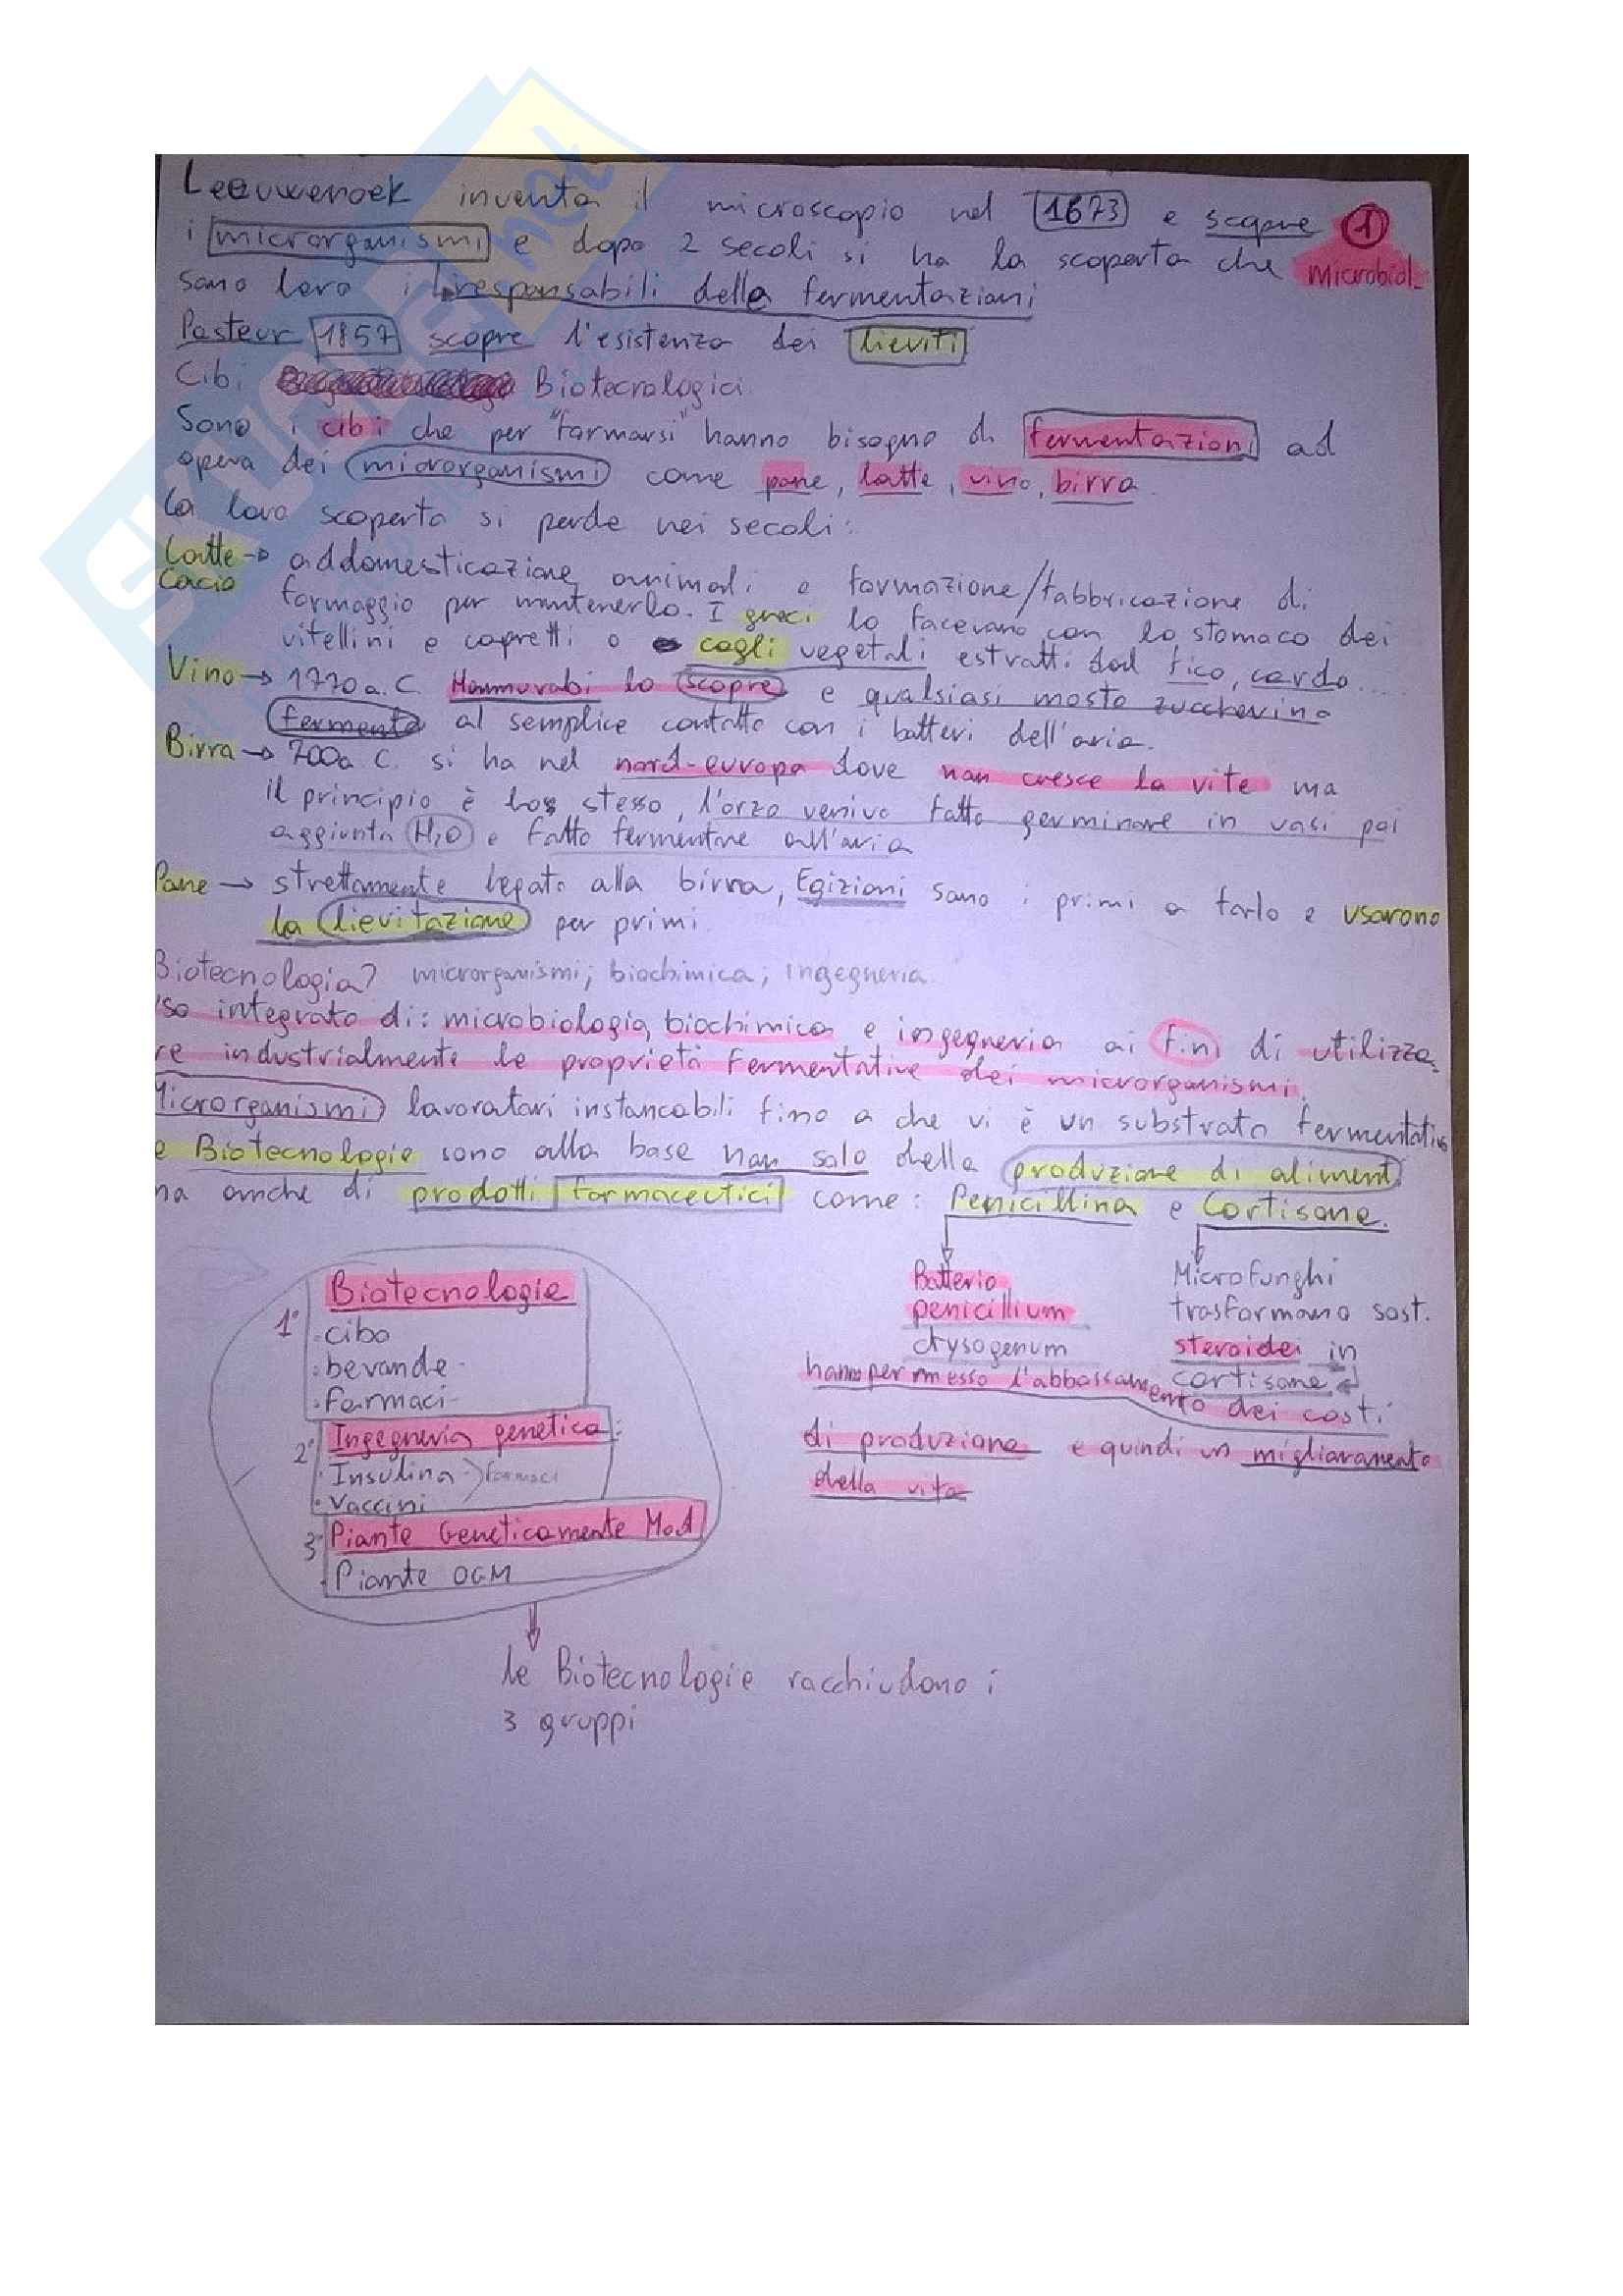 Leeuwenoek inventa il microscopio nel 1673 e scopre 1
i microrganismi e dopo 2 secoli si ha la scoperta che Microbiol.
sono loro i responsabili della fermentazioni
Pasteur 1857 scopre l'esistenza dei lieviti
Cibi Biotecnologici
Sono i cibi che per "formarsi" hanno bisogno di fermentazioni ad
opera dei microrganismi come pane, latte, vino, birra
La loro scoperta si perde nei secoli:
Latte → addomesticazione animali e formazione/fabbricazione di
Cacio formaggio per mantenerlo. I greci lo facevano con lo stomaco dei
vitellini e capretti o cagli vegetali estratti dal fico, cardo....
Vino → 1770 a.C. Hammurabi lo scopre e qualsiasi mosto zuccherino
fermenta al semplice contatto con i batteri dell'aria.
Birra → 700a C. si ha nel nord-europa dove non cresce la vite ma
il principio è lo stesso, l'orzo veniva fatto germinare in vasi poi
aggiunta H2O e fatto fermentare all'aria
Pane → strettamente legato alla birra, Egiziani sono i primi a farlo e usarono
la lievitazione per primi
Biotecnologia? microrganismi; biochimica; ingegneria
'so integrato di: microbiologia, biochimica e ingegneria ai fini di utilizza-
re industrialmente le proprietà fermentative dei microrganismi.
Microrganismi lavoratori instancabili fino a che vi è un substrato fermentativo
e Biotecnologie sono alla base non solo della produzione di alimenti
ma anche di prodotti farmaceutici come: Penicillina e Cortisone.
Batterio
penicillium
chrysogenum
Microfunghi
trasformano sost.
steroidei in
cortisone
hanno permesso l'abbassamento dei costi
di produzione e quindi un miglioramento
della vita
Biotecnologie
1° · cibo
· bevande
· farmaci
2° Ingegneria genetica:
· Insulina > farmaci
· Vaccini
3° Piante Geneticamente Mod
· Piante OGM
le Biotecnologie racchiudono i
3 gruppi